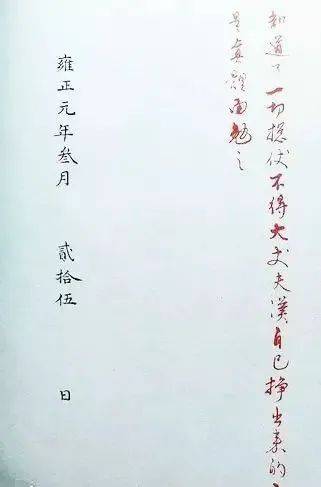 知道了一切揔仗不得大丈夫漢自己掙出来的
是真體面勉之
雍正元年叁月 貳拾伍 日